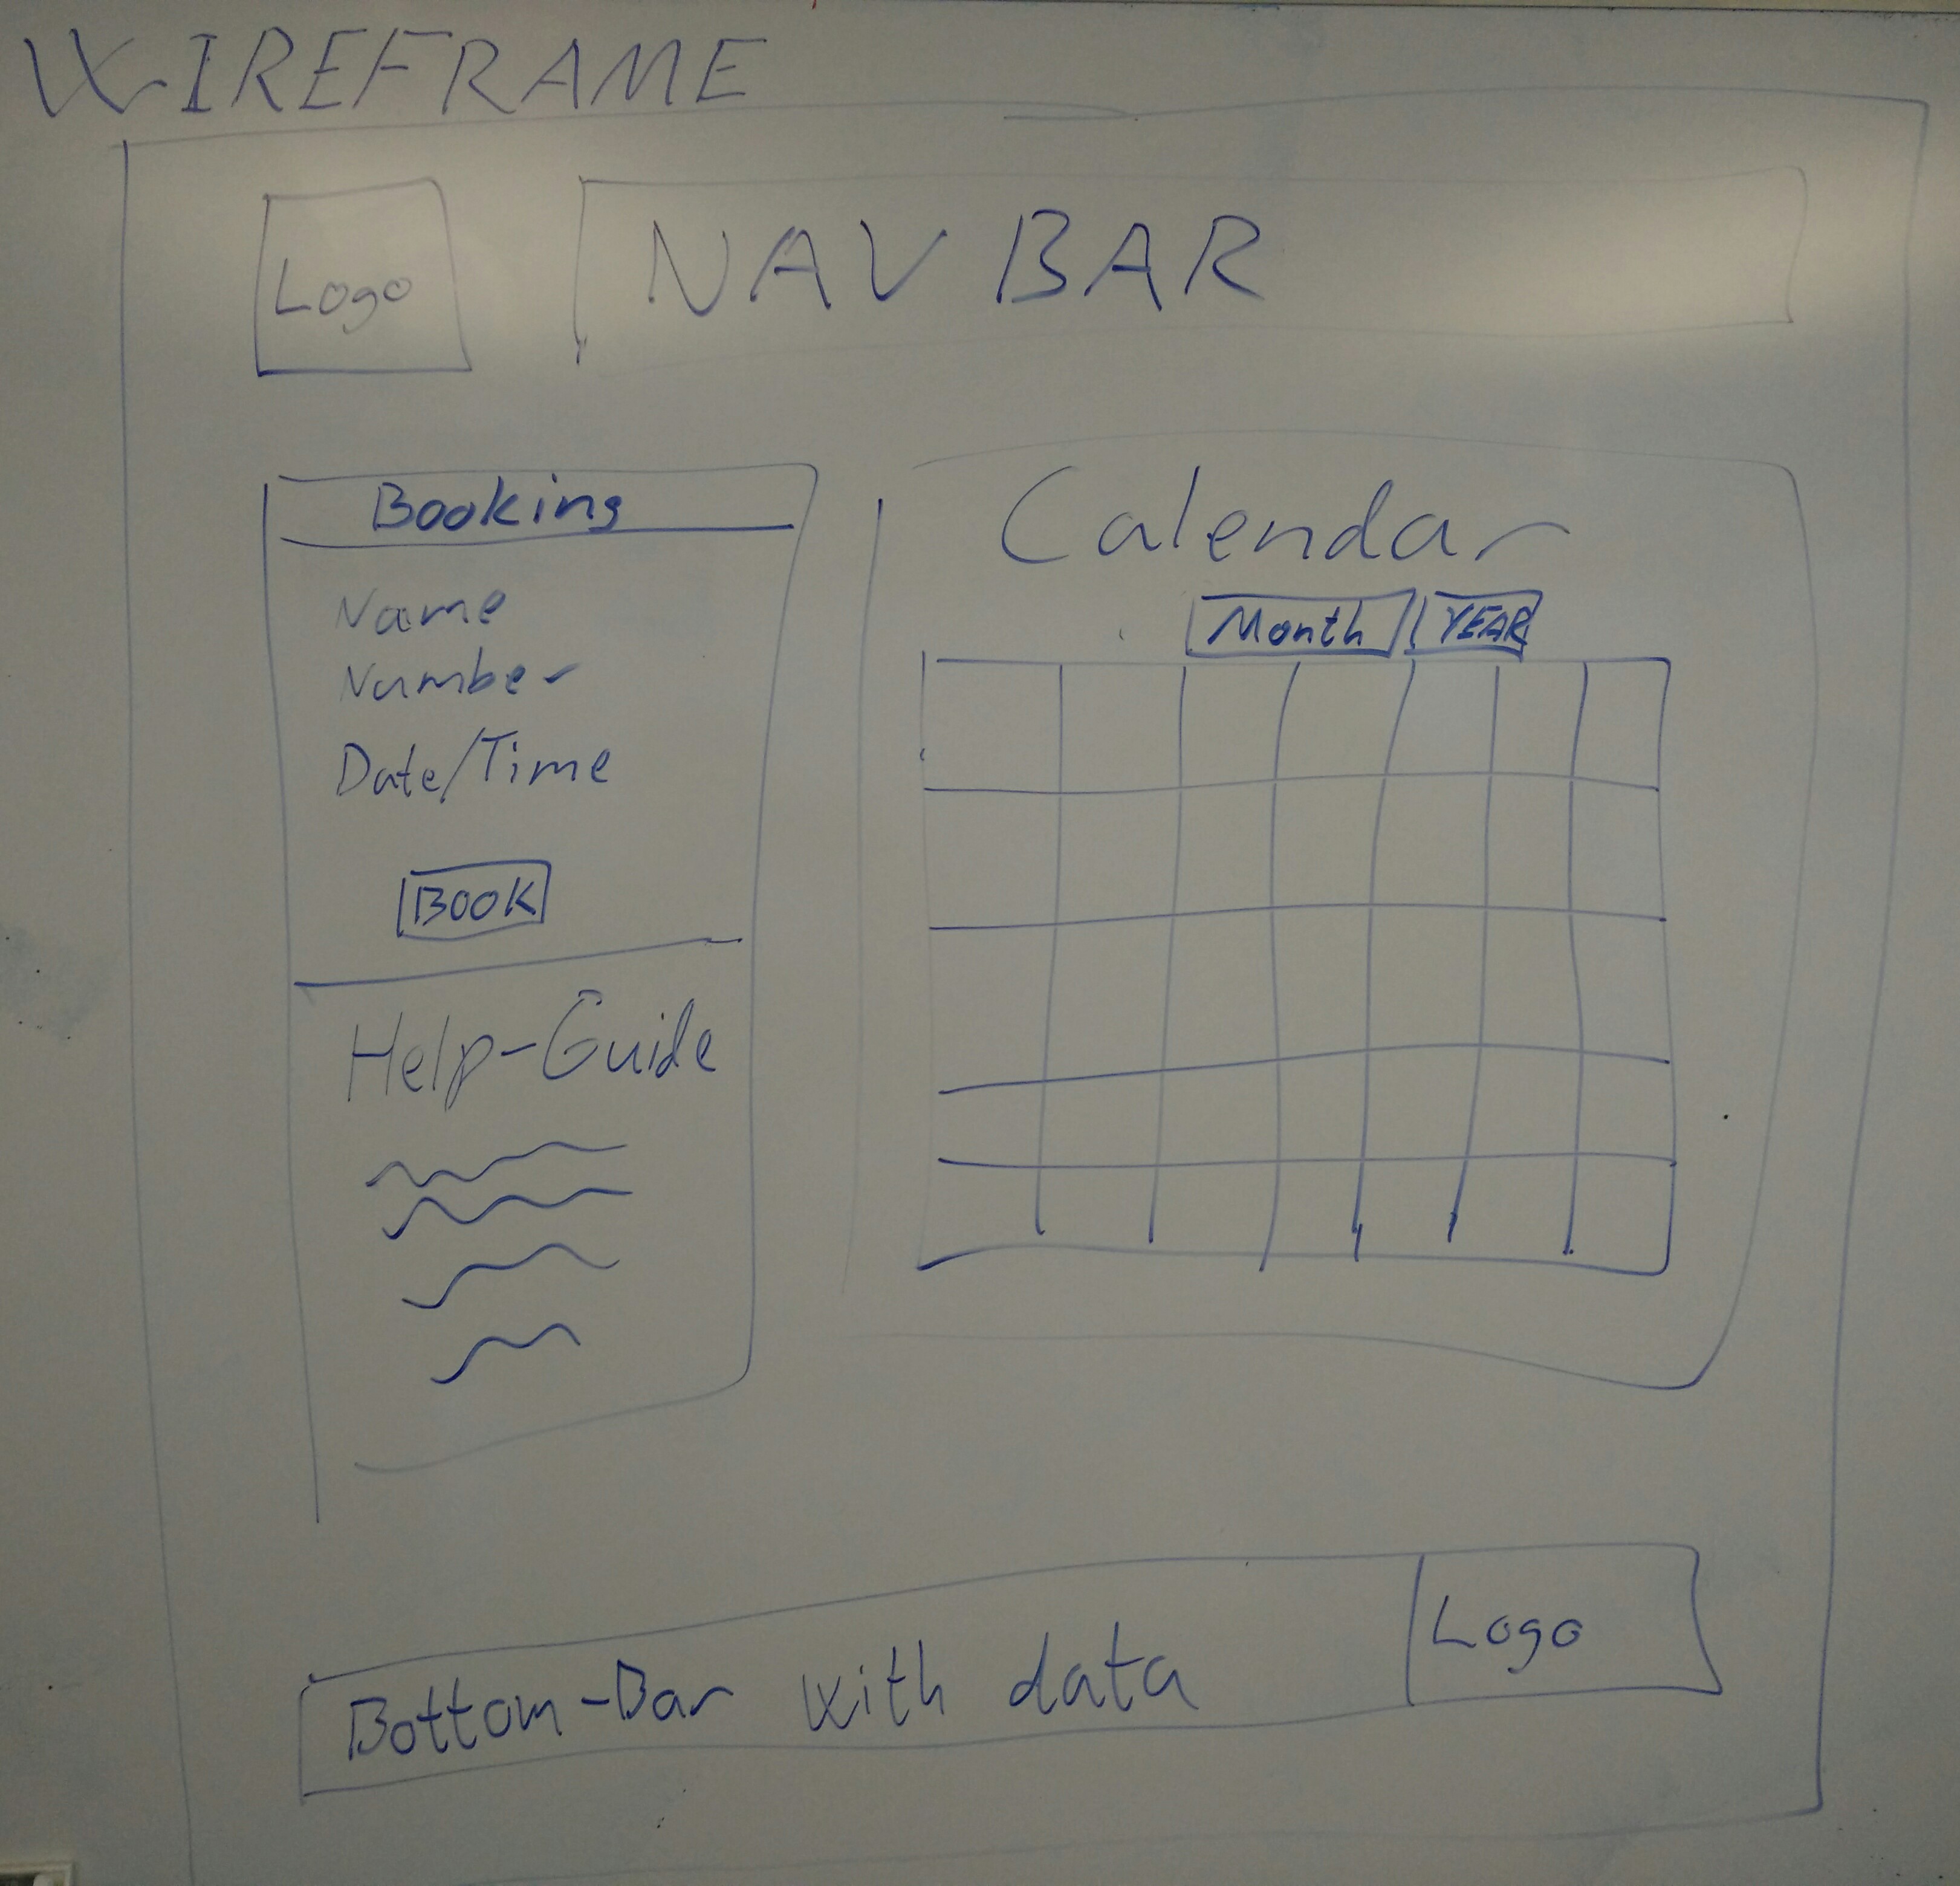 WIREFRAME
Logo
NAV BAR
Booking
Name
Number
Date/Time
BOOK
Help-Guide
Calendar
Month YEAR
Bottom-Bar with data
Logo